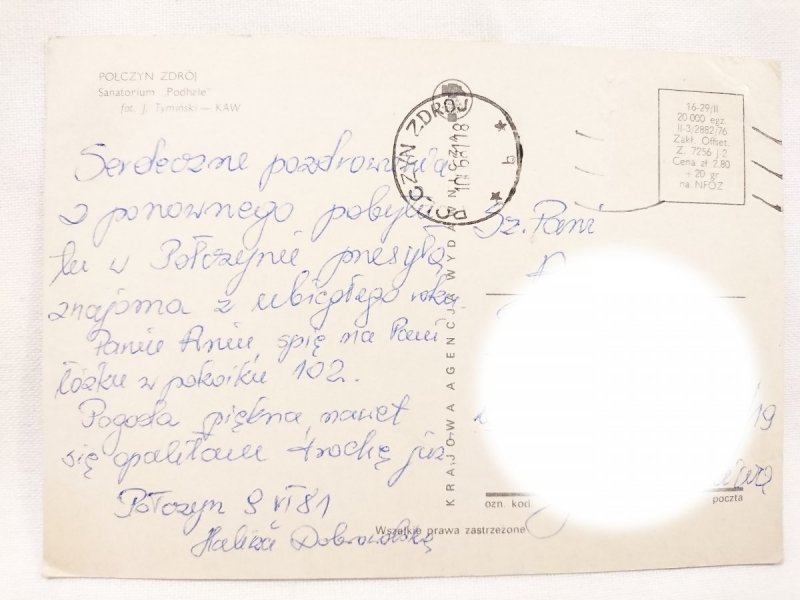 POŁCZYN ZDRÓJ
Sanatorium „Podhale"
fot. J. Tymiński — KAW
Serdeczne pozdrowienia
z ponownego pobytu
tu w Połczynie przesyła
znajoma z ubiegłego roku.
Panin Aniu, śpię na Pani
łóżku w pokoiku 102.
Pogoda piękna, nawet
się opaliłam trochę już
Połczyn 9 VI 81
Halina Dobrowolska
KRAJOWA AGENCJA WYDAWNICZA
POŁCZYN ZDRÓJ
b
16-29/II
20 000 egz.
II-3/2882/76
Zakł. Offset.
Z. 7256 j 2
Cena zł 2,80
+ 20 gr
na NFOZ
Sz. Pani
19
ozn. kod
poczta
Wszelkie prawa zastrzeżone